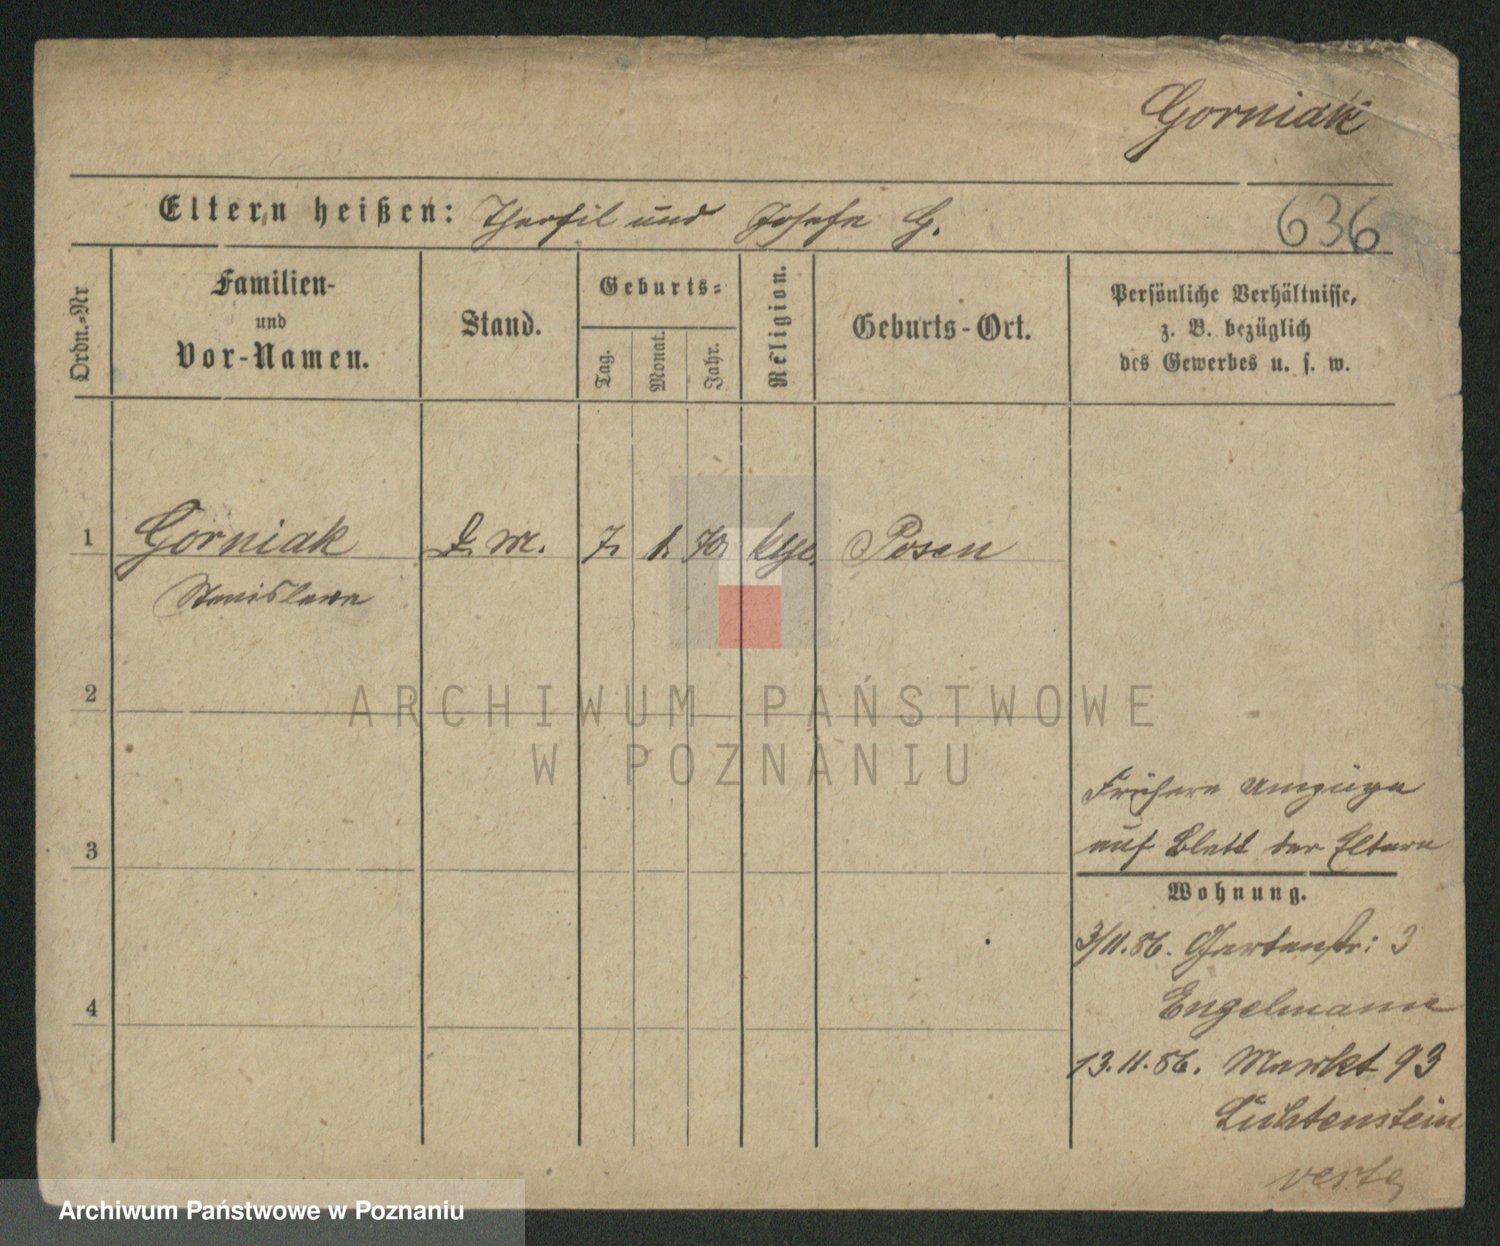 Gorniak
Eltern heißen: Theofil und Josefa G.
636
Ordn.-Nr
Familien-
und
Vor-Namen.
Stand.
Geburts-
Tag.
Monat.
Jahr.
Religion.
Geburts-Ort.
Persönliche Verhältnisse,
z. B. bezüglich
des Gewerbes u. s. w.
1 Gorniak D. M. 7. 1. 70. Posen
Stanislawa
2
ARCHIWUM PAŃSTWOWE
W POZNANIU
Frühere Umzüge
auf Blatt der Eltern
3
Wohnung.
3/11.86. Gartenstr: 3
Engelmann
4
13.11.86. Markt 93
Lichtenstein
verte
Archiwum Państwowe w Poznaniu